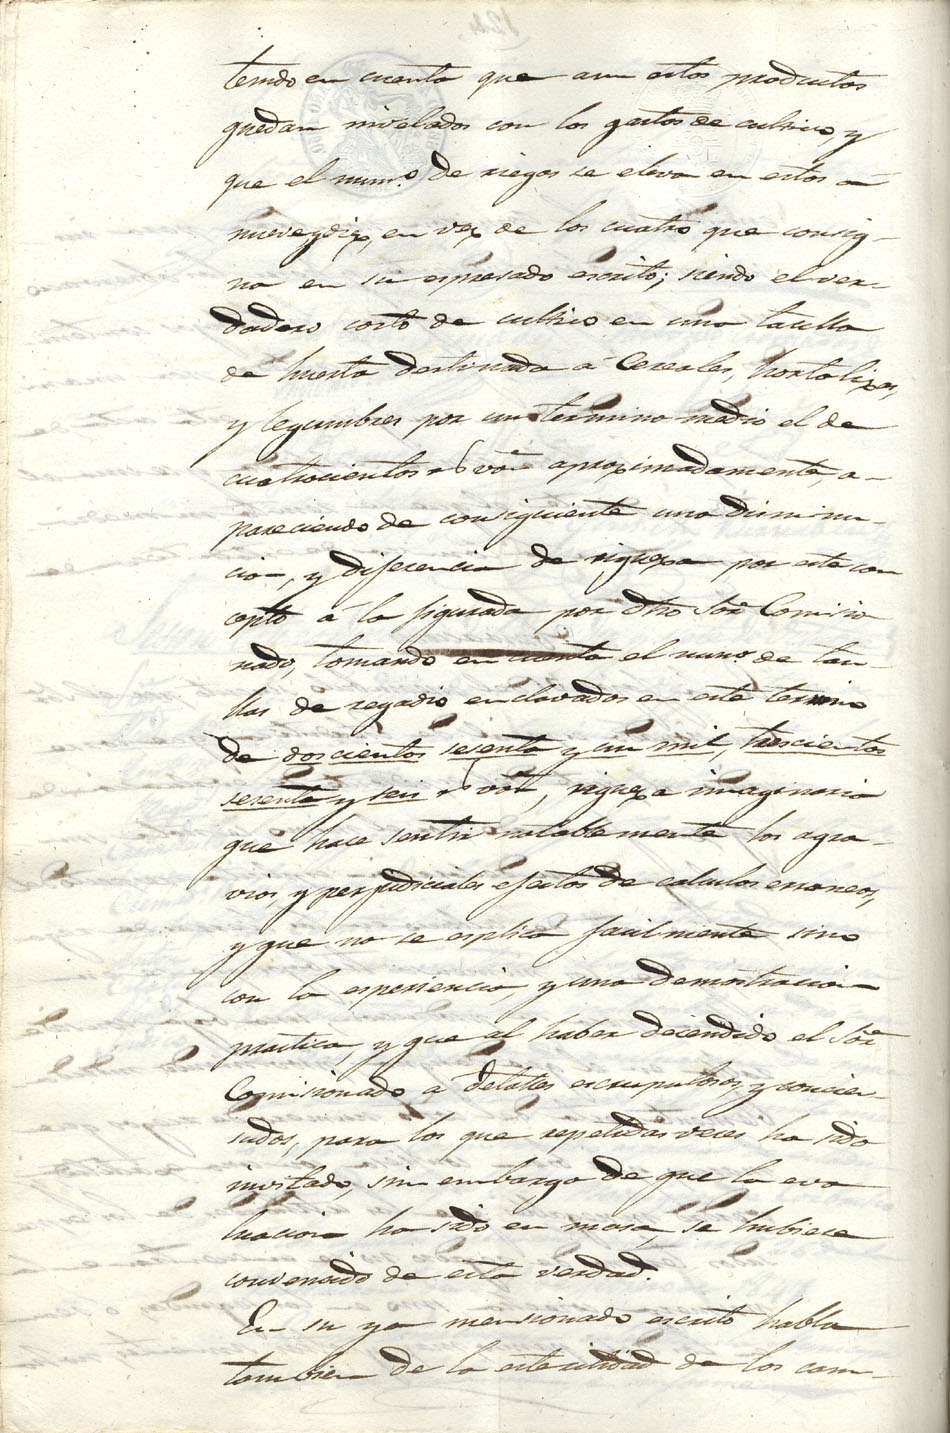 tenido en cuenta que aun estos productos
quedan nivelados con los gastos de cultivo, y
que el num.º de riegos se eleva en estos a
nueve y diez, en vez de los cuatro que consig-
na en su espresado escrito; siendo el ver-
dadero costo de cultivo en una taulla
de huerta destinada a Cereales, hortalizas,
y legumbres por un termino medio el de
cuatrocientos rs von aproximadamente, a-
pareciendo de consiguiente una diminu-
cion, y diferencia de riqueza por este con
cepto á la figurada por dho Sor Comisio
nado, tomando en cuenta el num.º de tau-
llas de regadio enclavados en este termino
de doscientos sesenta y un mil, trescientos
sesenta y seis rs von, riqueza imaginaria
que hace sentir notablemente los agra-
vios y perjudiciales efectos de calculos erroneos,
y que no se esplica facilmente sino
con la esperiencia, y una demostracion
practica, y que al haber decendido el Sor
Comisionado a detalles escrupulosos y concien-
sudos, para los que repetidas veces ha sido
invitado, sin embargo de que la eva
luacion ha sido en masa, se hubiese
convensido de esta verdad.
En su ya mensionado escrito habla
tambien de la esterilidad de los cam-